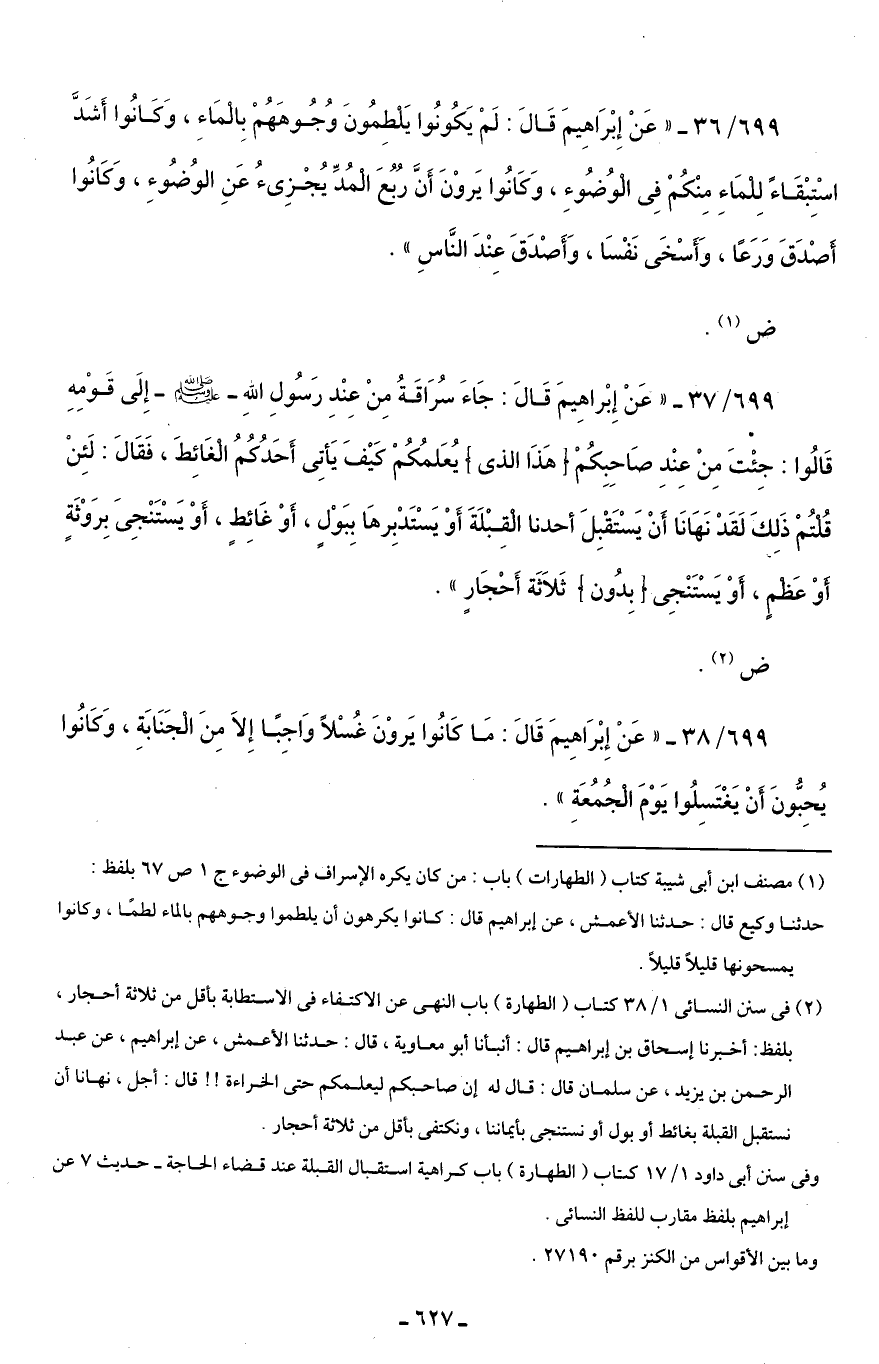 ٦٩٩/ ٣٦ ـ « عَنْ إِبْرَاهِيمَ قَـالَ : لَمْ يَكُونُوا يَلْطِمُونَ وُجُـوهَهُمْ بِالْمَاءِ ، وَكَـانُوا أَشَدَّ
اسْتِبْقَـاءً لِلْمَاءِ مِنْكُمْ فِى الْوُضُوءِ ، وَكَانُوا يَرَوْنَ أَنَّ رُبُعَ الْمُدِّ يُجْـزِىءُ عَنِ الوُضُوءِ ، وَكَانُوا
أَصْدَقَ وَرَعًا ، وَأَسْخَى نَفْسًا ، وَأَصْدَقَ عِنْدَ النَّاسِ » .
ض (١) .
٦٩٩/ ٣٧ ـ « عَنْ إِبْرَاهِيمَ قَـالَ : جَاءَ سُرَاقَـةُ مِنْ عِنْدِ رَسُولِ اللهِ ـ ﷺ ـ إِلَى قَـوْمِهِ
قَالُوا : جِئْتَ مِنْ عِنْدِ صَاحِبِكُمْ { هَذَا الذى } يُعَلِّمُكُمْ كَيْفَ يَأتِى أَحَدُكُمُ الْغَائِطَ ، فَقَالَ : لَئِنْ
قُلْتُمْ ذَلِكَ لَقَدْ نَهَانَا أَنْ يَسْتَقْبِلَ أحدنا الْقِـبْلَةَ أَوْ يَسْتَدْبِرهَا بِبَوْلٍ ، أَوْ غَائِطٍ ، أَوْ يَسْتَنْجِىَ بِرَوْثَةٍ
أَوْ عَظْمٍ ، أَوْ يَسْتَنْجِى { بِدُون } ثَلاَثَة أَحْجَارٍ » .
ض (٢) .
٦٩٩/ ٣٨ ـ « عَنْ إِبْرَاهِيمَ قَالَ : مَـا كَانُوا يَرَوْنَ غُسْلاً وَاجِبًـا إِلاَ مِنَ الْجَنَابَةِ ، وَكَانُوا
يُحِبُّونَ أَنْ يَغْتَسِلُوا يَوْمَ الْجُمُعَةِ » .
(١) مصنف ابن أبى شيبة كتاب ( الطهارات ) باب : من كان يكره الإسراف فى الوضوء ج ١ ص ٦٧ بلفظ :
حدثنـا وكيع قال : حـدثنا الأعمـش ، عن إبراهيم قال : كـانوا يكرهون أن يلطموا وجـوههم بالماء لطمًـا ، وكانوا
يمسحونها قليلاً قليلاً .
(٢) فى سنن النسـائى ١/ ٣٨ كتـاب ( الطهارة ) باب النهى عن الاكتـفاء فى الاستطابة بأقل من ثلاثة أحـجار ،
بلفظ: أخـبرنا إسـحاق بن إبراهـيم قال : أنبـأنا أبو معـاوية ، قال : حـدثنا الأعـمش ، عن إبراهيم ، عن عبـد
الرحـمن بن يزيد ، عن سلمـان قال : قـال له إن صاحبكم ليعلمـكم حتى الخراءة !! قال : أجل ، نهـانا أن
نستقبل القبلة بغائط أو بول أو نستنجى بأيماننا ، ونكتفى بأقل من ثلاثة أحجار .
وفى سنن أبى داود ١/ ١٧ كـتاب ( الطهـارة ) باب كـراهية استـقبـال القبلة عند قـضاء الحاجـة ـ حديث ٧ عن
إبراهيم بلفظ مقارب للفظ النسائى .
وما بين الأقواس من الكنز برقم ٢٧١٩٠ .
ـ ٦٢٧ ـ